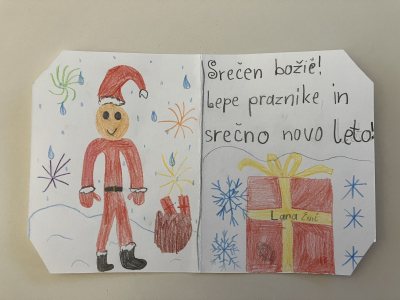 Srečen božič!
Lepe praznike in
srečno novo leto!
Lana